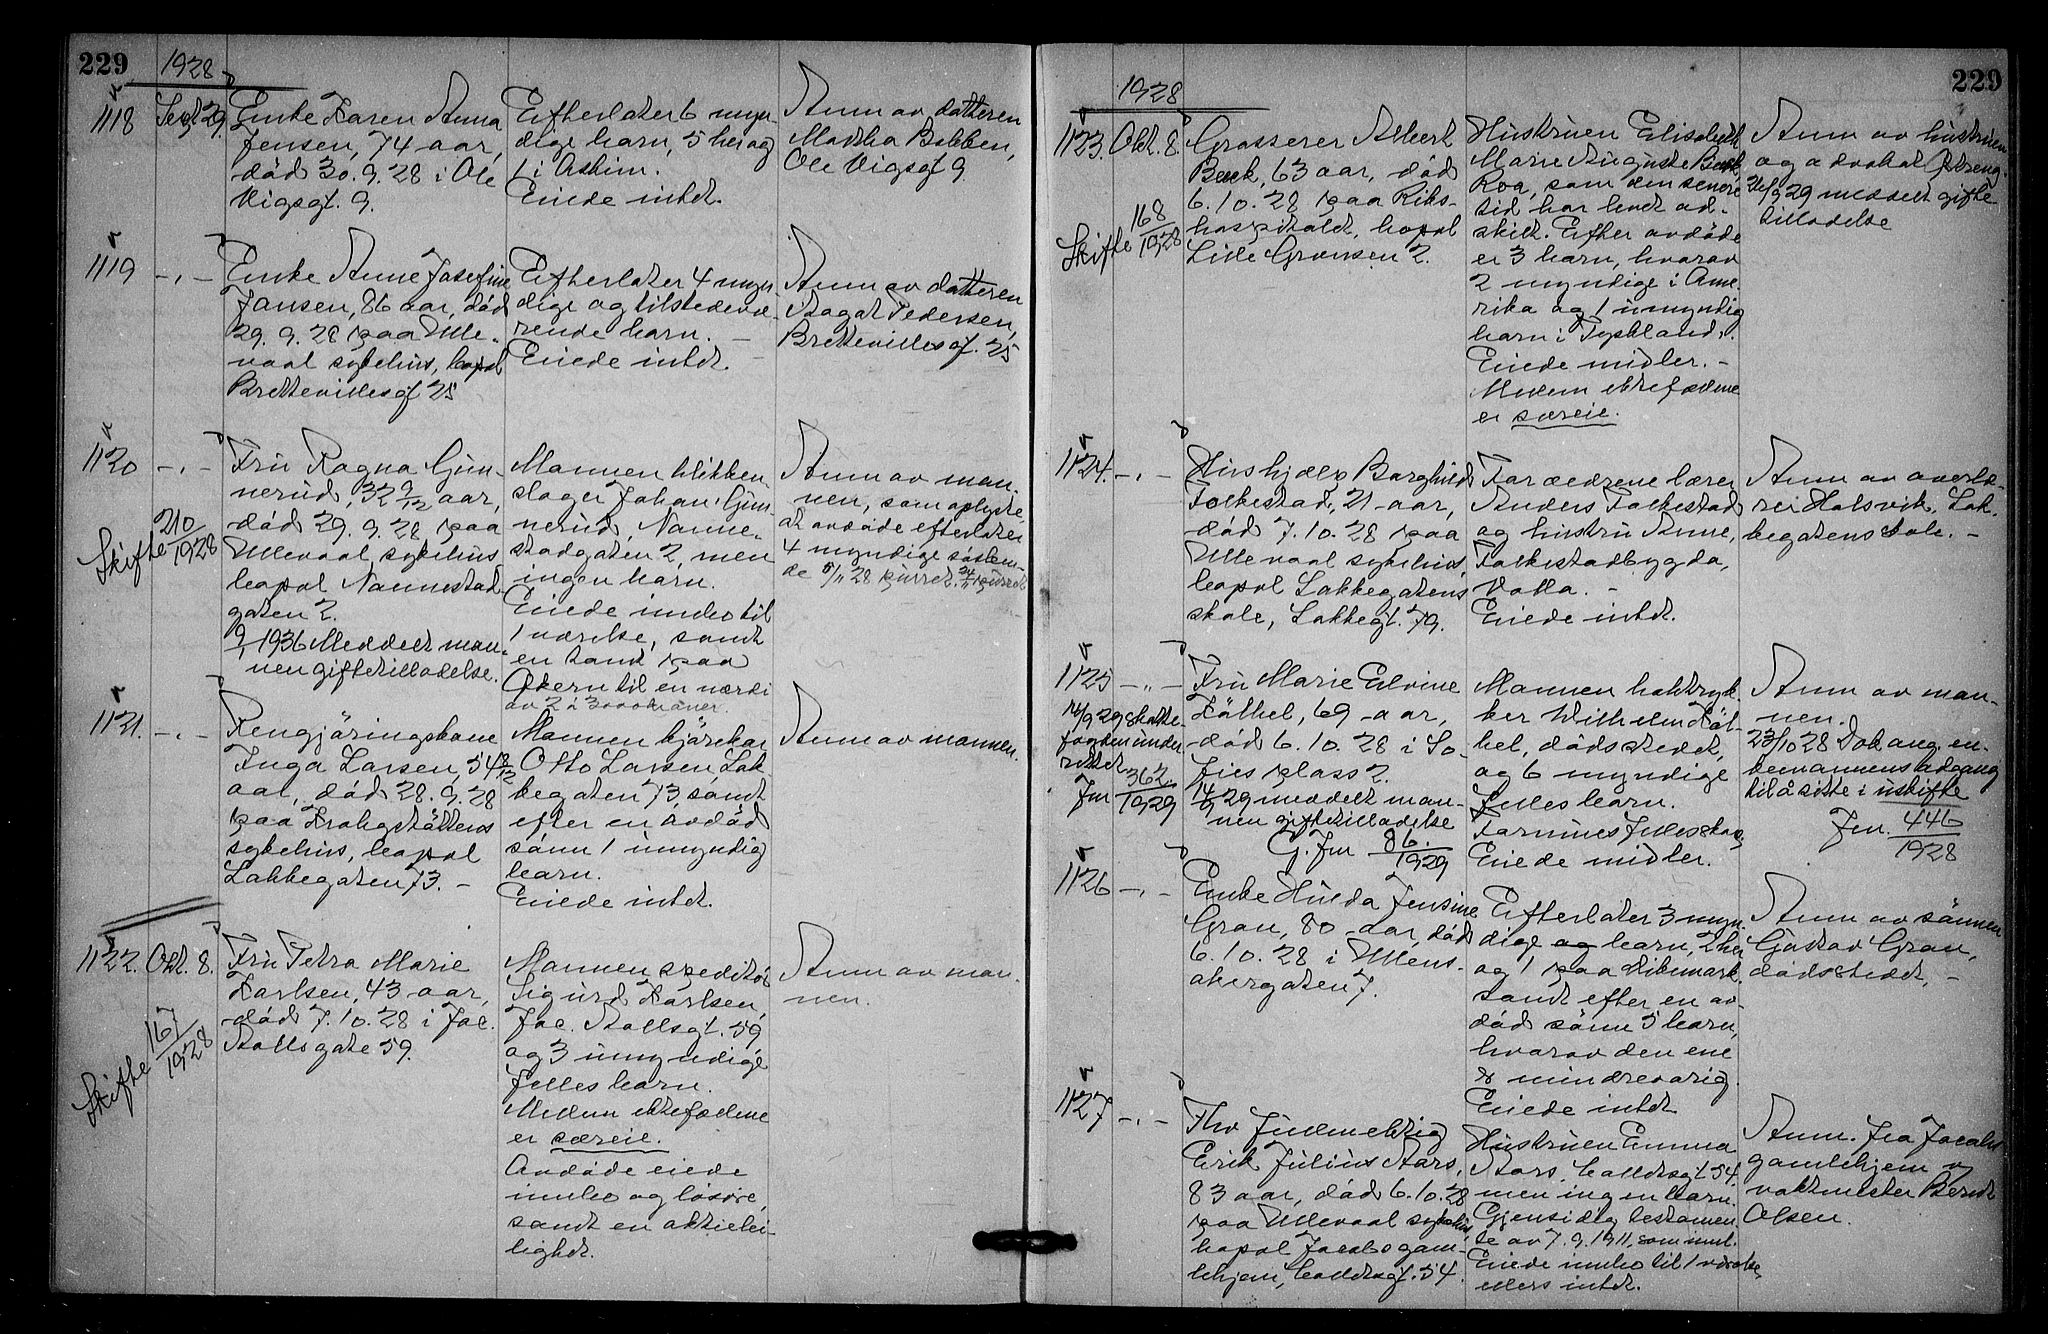 229
1928
1118
Sept. 29.
Enke Karen Anna
Jensen, 74 aar,
död 30.9.28 i Ole
Vigsgt. 9.
Efterlater 6 myn-
dige barn, 5 her og
1 i Askim.
Eiede intet.
Anm av datteren
Martha Bekken,
Ole Vigsgt 9.
1119 -"-
Enke Anne Josefine
Jansen, 86 aar, död
29.9.28 paa Ulle-
vaal sykehus, bopæl
Brettevillesgt 25
Efterlater 4 myn-
dige og tilstedevæ-
rende barn. -
Eiede intet.
Anm av datteren
Dagat Pedersen,
Brettevillesgt. 25
1120 -"-
Skifte 210/1928
Fru Ragna Gun-
nerud, 32 9/12 aar,
död 29.9.28 paa
Ullevaal sykehus
bopæl Nannestad
gaten 2.
1936 Meddelt man-
nen giftetilladelse.
Mannen blikken-
slager Johan Gun-
nerud, Nanne-
stadgaten 2, men
ingen barn.
Eiede innbo til
1 værelse, samt
en tomt paa
Økern til en værdi
av 2 à 3000 kroner.
Anm av man-
nen, som oplyste,
at avdöde efterlater
4 myndige sösken-
de 5/11 28 purret.
1121. -"-
Rengjöringskone
Inga Larsen, 54 8/12
aar, död 28.9.28
paa Krohgstöttens
sykehus, bopæl
Lakkegaten 73. -
Mannen kjörekar
Otto Larsen Lak-
kegaten 73, samt
efter en avdöd
sönn 1 umyndig
barn.
Eiede intet.
Anm av mannen.
1122. Okt. 8.
Skifte 167/1928
Fru Petra Marie
Karlsen, 43 aar,
död 7.10.28 i Jac.
Aallsgate 59.
Mannen speditör
Sigurd Karlsen,
Jac. Aallsgt. 59
og 3 umyndige
felles barn.
Mellem ektefællene
er særeie.
Avdöde eiede
innbo og lösöre,
samt en aktielei-
lighet.
Anm av man-
nen.
229
1928
1123. Okt. 8.
Skifte 168/1928
Grosserer Albert
Beck, 63 aar, död
6.10.28 paa Riks-
hospitalet, bopæl
Lille Grensen 2.
Hustruen Elisabeth
Marie Auguste Beck,
Roa, som den senere
tid har levet ad-
skilt. Efter avdöde
er 3 barn, hvorav
2 myndige i Ame-
rika og 1 umyndig
barn i Tyskland.
Eiede midler. -
Mellem ektefællene
er særeie.
Anm av hustruen
og advokat
29 meddelt gifte
tilladelse
1124. -"-
Hushjælp Borghild
Folkestad, 21 aar,
död 7.10.28 paa
Ullevaal sykehus,
bopæl Lakkegatens
skole, Lakkegt. 79.
Forældrene lærer
Anders Folkestad
og hustru Anne,
Folkestadbygda,
Volla. -
Eiede intet.
Anm av overlæ-
rer Halsvik, Lak-
kegatens skole. -
1125 -"-
29 skatte-
fogden under-
rettet
Jnr 362/1929
Fru Marie Elvine
Köthel, 69 aar,
död 6.10.28 i So-
fies plass 2.
29 meddelt man-
nen giftetilladelse
G. Jnr 86./1929
Mannen boktryk-
ker Wilhelm Köt-
hel, dödsstedet,
og 6 myndige
felles barn.
Formues fellesskap
Eiede midler.
Anm av man-
nen.
23/10 28 Dok ang. en-
kemannens adgang
til å sitte i uskifte
Jnr. 446/1928
1126 -"-
Enke Hulda Jensine
Gran, 80 aar, död
6.10.28 i Ullens-
akergaten 7.
Efterlater 3 myn-
dige og barn, 2 her
og 1 paa Dikemark.
samt efter en av-
död sönn 5 barn,
hvorav den ene
er mindreaarig.
Eiede intet
Anm av sönnen
Gustav Gran,
dödsstedet, -
1127 -"-
Fhv fuldmektig
Erik Julius Aars,
83 aar, död 6.10.28
paa Ullevaal sykehus
bopæl Jacobs gam-
lehjem, Calldsgt. 54.
Hustruen Emma
Aars, Calldsgt 54.
men ingen barn.
Gjensidig testamen-
te av 7.9.1911, som
Eiede innbo til 1 værelse
ellers intet.
Anm. fra Jacobs
gamlehjem v
vaktmester Bernt
Olsen.